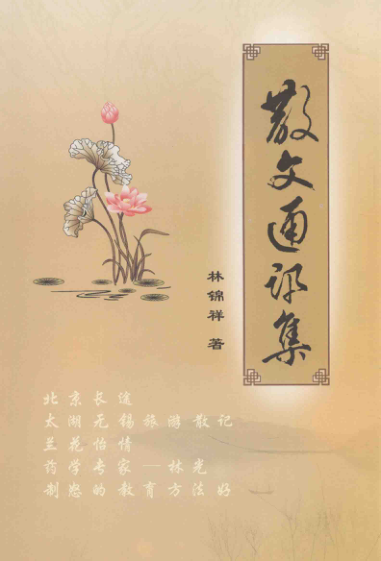 散文通讯集
林锦祥 著
北京长
太湖无锡旅游散记
兰花怡情
药学专家——林光
制怒的教育方法好